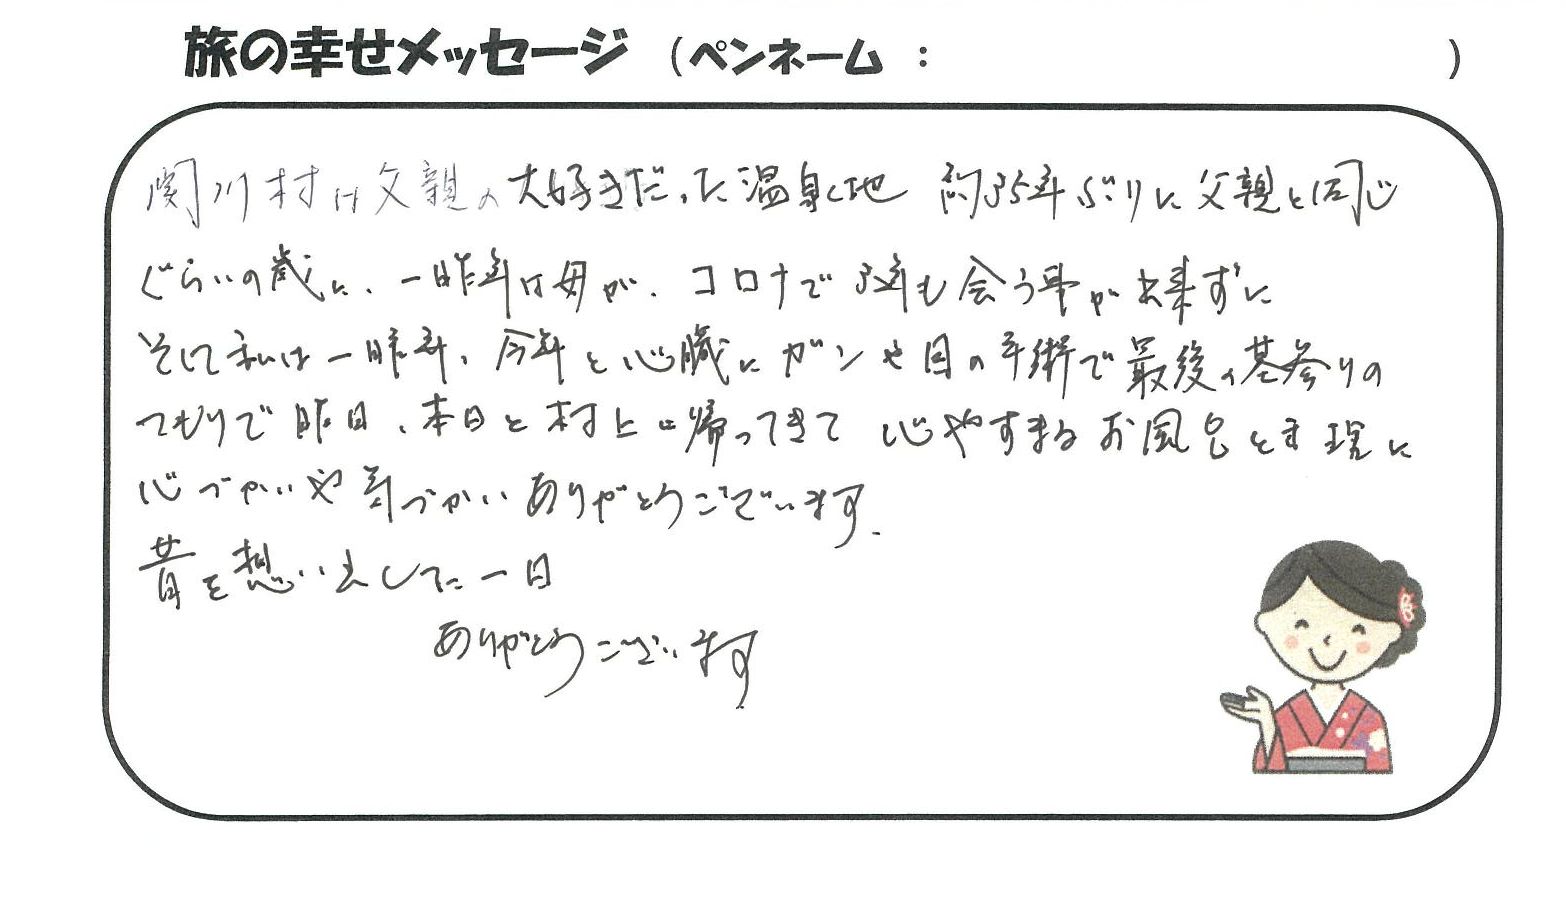 旅の幸せメッセージ (ペンネーム : )
関川村は父親の大好きだった温泉地 約35年ぶりに父親と同じ
ぐらいの歳に、一昨年は母が、コロナで3年も会う事が出来ずに
そして私は一昨年、今年と心臓にガンや目の手術で最後の墓参りの
つもりで昨日、本日と村上に帰ってきて 心やすまるお風呂とお
心づかいや気づかいありがとうございます.
昔を想い出してた一日
ありがとうございます